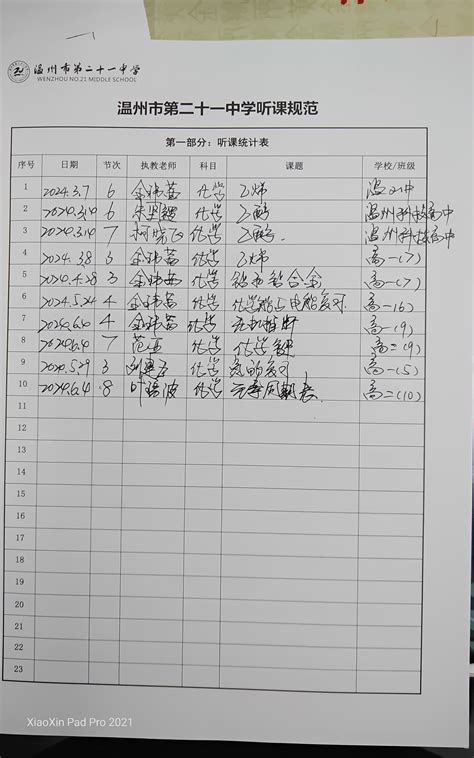 温州市第二十一中学
WENZHOU NO.21 MIDDLE SCHOOL
温州市第二十一中学听课规范
第一部分：听课统计表
序号 日期 节次 执教老师 科目 课题 学校/班级
1 2024.3.7 6 金玮茜 化学 乙烯 温二中
2 2024.3.14 6 化学 乙醇 温州科技高中
3 2024.3.14 7 柯晓飞 化学 乙醇. 温州科技高中
4 2024.3.8 3 金玮茜 化学 乙烯 高一(7)
5 2024.4.28 3 金玮茜 化学 铝和铝合金 高一(7)
6 2024.5.24 4 金玮茜 化学 化学能与电能复习 高一(6)
7 2024.6.4 4 金玮茜 化学 无机推断 高一(9)
8 2024.6.4 7 化学 化学键 高二(9)
9 2024.5.29 3 化学 复习 高一(5)
10 2024.6.4 8 叶 波 化学 元素周期表 高二(10)
11
12
13
14
15
16
17
18
19
20
21
22
23
XiaoXin Pad Pro 2021